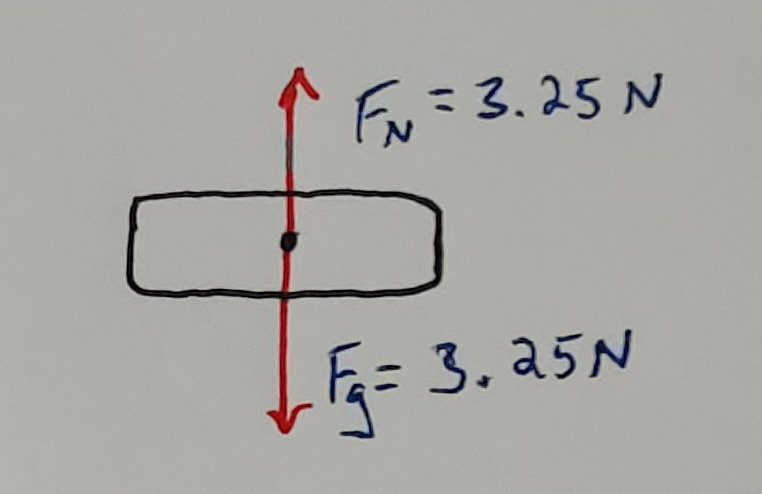 F_N = 3.25 N
F_g = 3.25N